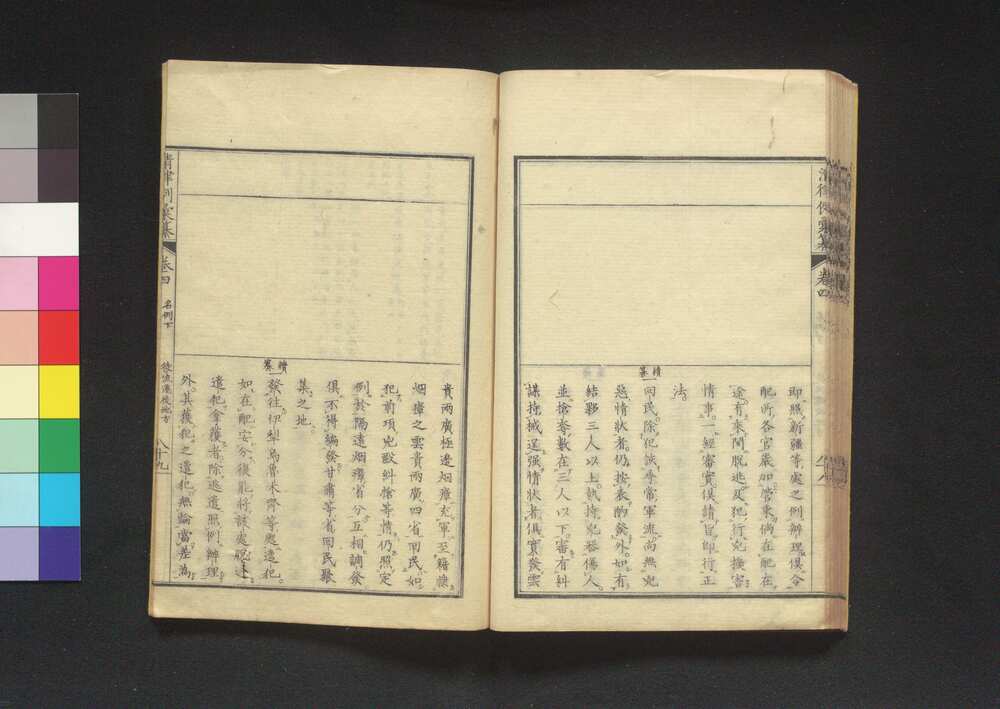 清律例彙纂
卷四
即照新疆等處之例辦理俱令
配所各官嚴加管束倘在配在
途有乘間脫逃及犯行兇搶害
情事一經審實俱請旨即行正
法
續纂
一回民除犯該尋常軍流尚無兇
惡情狀者仍按表酌發外如有
結夥三人以上執持兇器傷人
並搶奪數在三人以下審有糾
謀持械逞强情狀者俱實發雲
貴兩廣極邊烟瘴充軍至籍隸
烟瘴之雲貴兩廣四省回民如
犯前項兇毆糾搶等情仍照定
例於隔遠烟瘴省分互相調發
俱不得編發甘肅等省回民聚
集之地
續纂
一發往切烏魯木齊等處遣犯
如在配安分後能將該處脫逃
遣犯拿獲者除逃遣照例辦理
外其獲犯之遣犯無論當差為
清律例彙纂
卷四
名例下
徒流遷徙地方
八十九